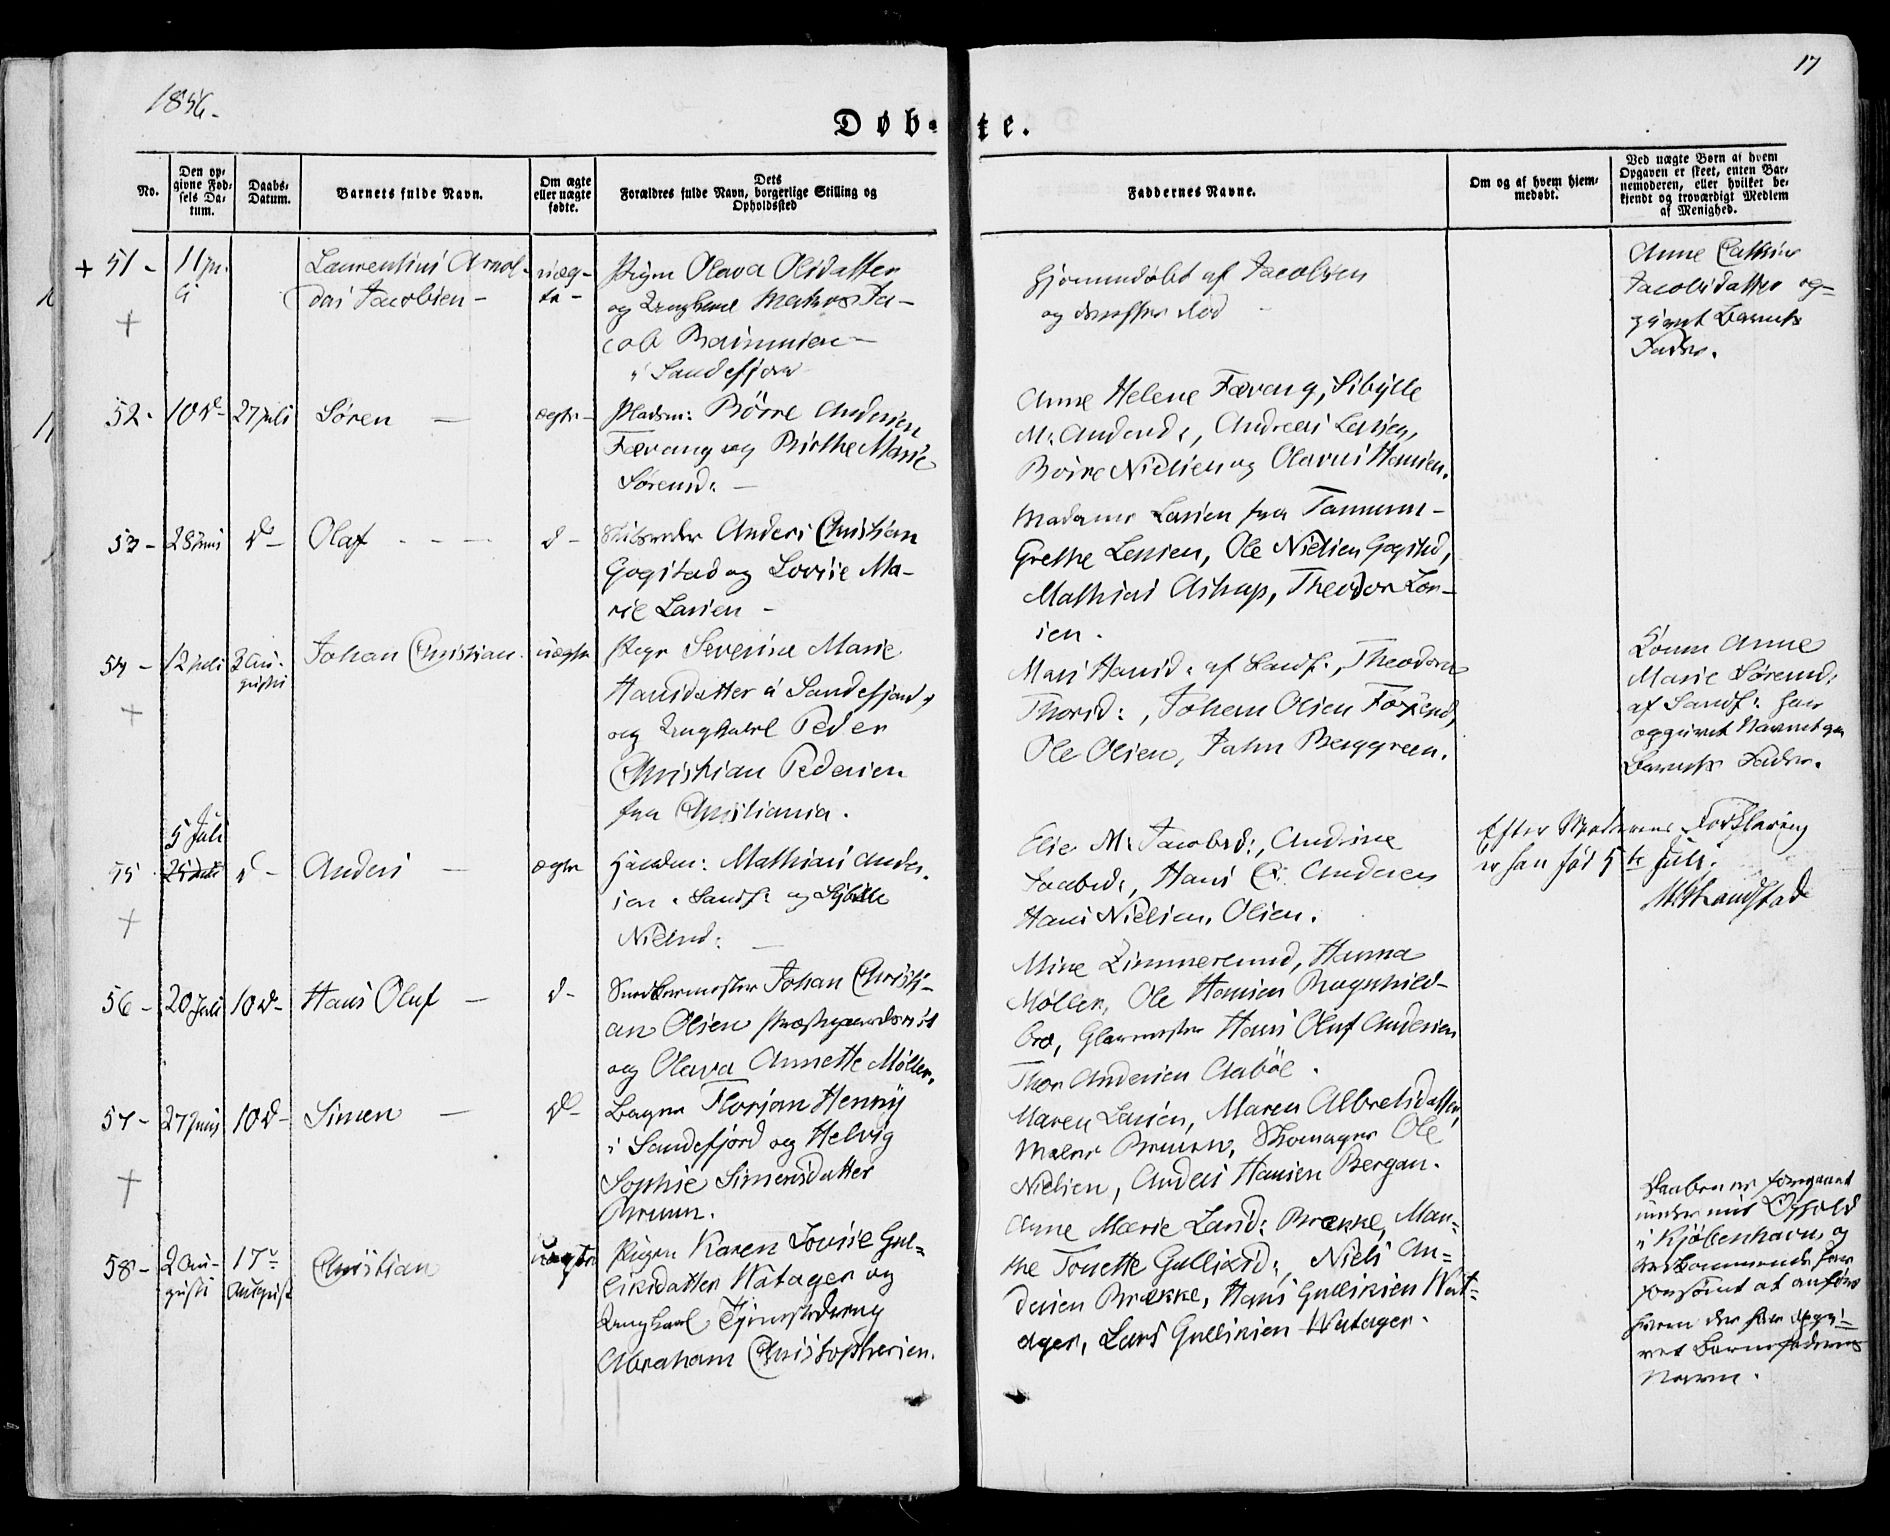 1856.
17
Døb-te.
No.
Den op-
givne Fød-
sels Da-
tum.
Daabs-
Datum.
Barnets fulde Navn.
Om ægte
eller uægte
fødte.
Dets
Forældres fulde Navn, borgerlige Stilling og
Opholdssted
Faddernes Navne.
Om og af hvem hjem-
medøbt.
Ved uægte Børn af hvem
Opgaven er skeet, enten Bar-
nemoderen, eller hvilket be-
kjendt og troværdigt Medlem
af Menighed.
+ 51 -
11 ju-
li
Laurentius Arnol-
dus Jacobsen -
uæg-
te -
Pigen Olava Olsdatter
og Ungkarl Mathias Ja-
cob Rasmussen -
i Sandefjord
Hjemmedøbt af Jacobsen
og derefter død -
Anne Cathrine
Jacobsdatter op-
givet Barnets
Fader.
52 -
10 d -
27 juli
Søren -
ægte -
Pladsm: Börre Andersen
Fævang og Birthe Marie
Sørensd: -
Anne Helene Fævang, Sibylle
M: Andersd:, Andreas Larsen,
Börre Nielsen og Olavus Hansen.
53 -
28 juni
d -
Olaf - - -
d -
Skibsreder Anders Christian
Gogstad og Lovise Ma-
rie Larsen -
Madame Larsen fra Tamum -
Grethe Larsen, Ole Nielsen Gogstad,
Mathias Askup, Theodor Lar-
sen.
54 -
12 juli
3 Au-
gusti
Johan Christian.
uægte
Pige Severine Marie
Hansdatter i Sandefjord,
og Ungkarl Peder
Christian Pedersen
fra Christiania.
Mari Hansd: af Sandf:, Theodora
Thorsd:, Johan Olsen
Ole Olsen, John Berggreen.
Konen Anne
Marie Sørensd:
af Sandf: har
opgivet Navnet paa
Barnets Fader.
55
5 Juli
d -
Anders -
ægte
Mathias Ander-
sen i Sandf: og Sybille
Nielsd: -
Else M: Jacobsd:, Andrine
Jacobsd:, Hans C. Andersen
Hans Nielsen, Olsen.
Efter Moderens Forklaring
er han født 5te Juli.
MBLandstad
56 -
20 Juli
10 d -
Hans Oluf -
d -
Snedkermester Johan Christi-
an Olsen
og Olava Annette Møller.
Mine Zimmerlund, Hanna
Møller, Ole Hansen Ragnhild-
brø, Glarmester Hans Oluf Andersen
Thor Andersen Aabøl.
57 -
27 juni
10 d -
Simen -
d -
Bager Florian Henny
i Sandefjord og Helvig
Sophie Simensdatter
Bruun.
Maren Larsen, Maren Albretsdatter,
Maler Bruun, Skomager Ole
Nielsen, Anders Hansen Bergan.
58 -
2 Au-
gusti
17
August
Christian
uægte
Pigen Karen Lovise Gul-
liksdatter Watager og
Ungkarl
Abraham Christophersen.
Anne Marie Larsd: Brække, Mar-
the Tonette Gulliksd:, Niels An-
dersen Brække, Hans Gulliksen Wat-
ager, Lars Gulliksen Watager.
Daaben er foregaaet
under mit Ophold
i Kjøbenhavn og
Vedkommende har
forsømt at anføre
hvem der har opgi-
vet Barnefaderens
Navn.